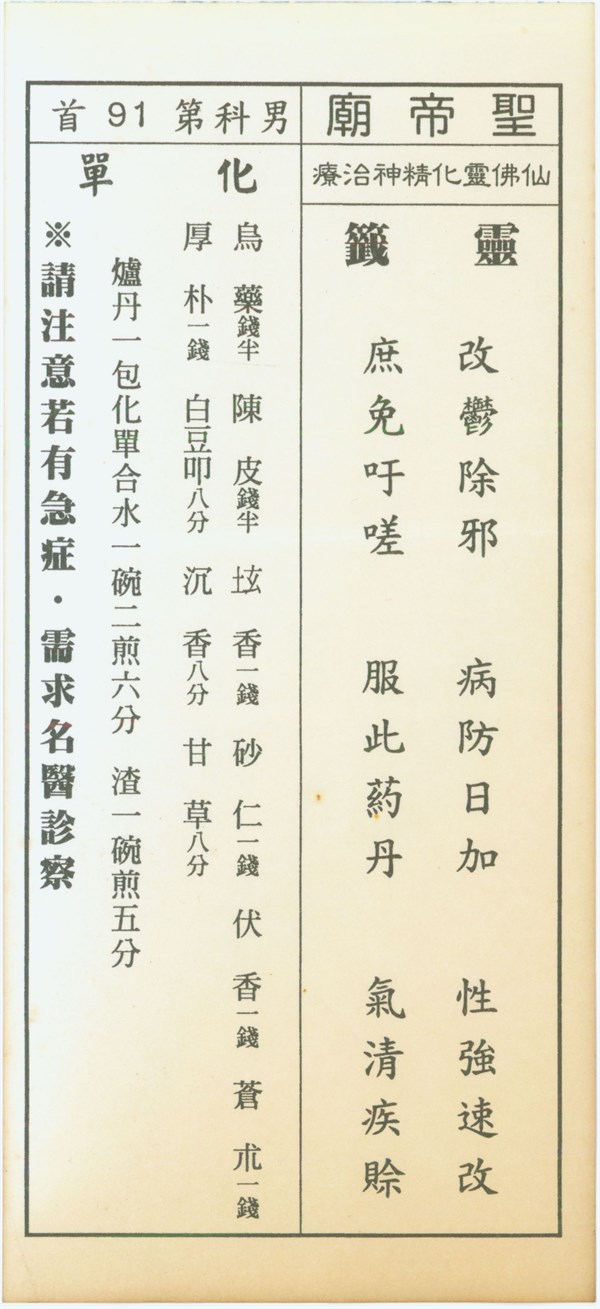 聖帝廟
仙佛靈化精神治療
靈籤
改鬱除邪 病防日加 性強速改
庶免吁嗟 服此葯丹 氣清疾賒
男科第91首
化單
烏藥錢半 陳皮錢半 玹香一錢 砂仁一錢 伏香一錢 蒼朮一錢
厚朴一錢 白豆叩八分 沉香八分 甘草八分
爐丹一包化單合水一碗二煎六分 渣一碗煎五分
※請注意若有急症・需求名醫診察